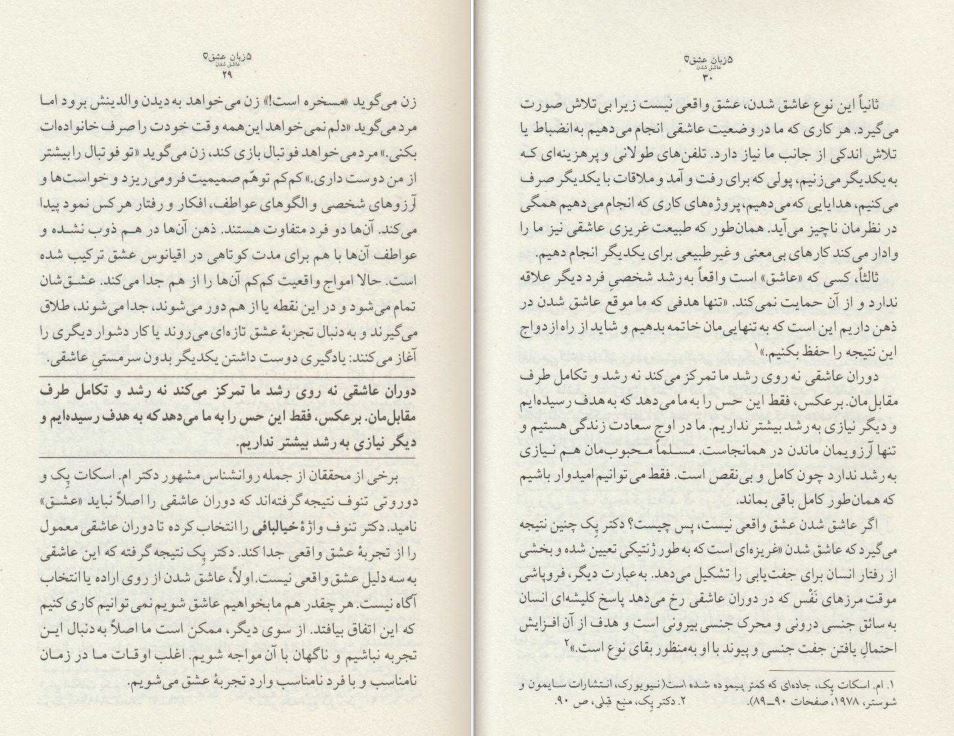 ۵ زبان عشق
عاشق شدن
۲۹
زن می‌گوید «مسخره است!» زن می‌خواهد به دیدن والدینش برود اما
مرد می‌گوید «دلم نمی‌خواهد این‌همه وقت خودت را صرف خانواده‌ات
بکنی.» مرد می‌خواهد فوتبال بازی کند، زن می‌گوید «تو فوتبال را بیشتر
از من دوست داری.» کم‌کم توهّم صمیمیت فرو می‌ریزد و خواست‌ها و
آرزوهای شخصی و الگوهای عواطف، افکار و رفتار هر کس نمود پیدا
می‌کند. آن‌ها دو فرد متفاوت هستند. ذهن آن‌ها در هم ذوب نشده و
عواطف آن‌ها با هم برای مدت کوتاهی در اقیانوس عشق ترکیب شده
است. حالا امواج واقعیت کم‌کم آن‌ها را از هم جدا می‌کند. عشق‌شان
تمام می‌شود و در این نقطه یا از هم دور می‌شوند، جدا می‌شوند، طلاق
می‌گیرند و به دنبال تجربهٔ عشق تازه‌ای می‌روند یا کار دشوار دیگری را
آغاز می‌کنند: یادگیری دوست داشتن یکدیگر بدون سرمستیِ عاشقی.
دوران عاشقی نه روی رشد ما تمرکز می‌کند نه رشد و تکامل طرف
مقابل‌مان. برعکس، فقط این حس را به ما می‌دهد که به هدف رسیده‌ایم و
دیگر نیازی به رشد بیشتر نداریم.
برخی از محققان از جمله روانشناس مشهور دکتر ام. اسکات پِک و
دوروتی تنوف نتیجه گرفته‌اند که دوران عاشقی را اصلاً نباید «عشق»
نامید. دکتر تنوف واژهٔ خیالبافی را انتخاب کرده تا دوران عاشقی معمول
را از تجربهٔ عشق واقعی جدا کند. دکتر پِک نتیجه گرفته که این عاشقی
به سه دلیل عشق واقعی نیست. اولاً، عاشق شدن از روی اراده یا انتخاب
آگاه نیست. هر چقدر هم ما بخواهیم عاشق شویم نمی‌توانیم کاری کنیم
که این اتفاق بیافتد. از سوی دیگر، ممکن است ما اصلاً به‌دنبال این
تجربه نباشیم و ناگهان با آن مواجه شویم. اغلب اوقات ما در زمان
نامناسب و با فرد نامناسب وارد تجربهٔ عشق می‌شویم.
۵ زبان عشق
عاشق شدن
۳۰
ثانیاً این نوع عاشق شدن، عشق واقعی نیست زیرا بی‌تلاش صورت
می‌گیرد. هر کاری که ما در وضعیت عاشقی انجام می‌دهیم به‌انضباط یا
تلاش اندکی از جانب ما نیاز دارد. تلفن‌های طولانی و پرهزینه‌ای که
به یکدیگر می‌زنیم، پولی که برای رفت و آمد و ملاقات با یکدیگر صرف
می‌کنیم، هدایایی که می‌دهیم، پروژه‌های کاری که انجام می‌دهیم همگی
در نظرمان ناچیز می‌آید. همان‌طور که طبیعت غریزی عاشقی نیز ما را
وادار می‌کند کارهای بی‌معنی و غیرطبیعی برای یکدیگر انجام دهیم.
ثالثاً، کسی که «عاشق» است واقعاً به رشد شخصیِ فرد دیگر علاقه
ندارد و از آن حمایت نمی‌کند. «تنها هدفی که ما موقع عاشق شدن در
ذهن داریم این است که به تنهایی‌مان خاتمه بدهیم و شاید از راه ازدواج
این نتیجه را حفظ بکنیم.»۱
دوران عاشقی نه روی رشد ما تمرکز می‌کند نه رشد و تکامل طرف
مقابل‌مان. برعکس، فقط این حس را به ما می‌دهد که به هدف رسیده‌ایم
و دیگر نیازی به رشد بیشتر نداریم. ما در اوج سعادت زندگی هستیم و
تنها آرزویمان ماندن در همانجاست. مسلماً محبوب‌مان هم نیازی
به رشد ندارد چون کامل و بی‌نقص است. فقط می‌توانیم امیدوار باشیم
که همان‌طور کامل باقی بماند.
اگر عاشق شدن عشق واقعی نیست، پس چیست؟ دکتر پِک چنین نتیجه
می‌گیرد که عاشق شدن «غریزه‌ای است که به طور ژنتیکی تعیین شده و بخشی
از رفتار انسان برای جفت‌یابی را تشکیل می‌دهد. به‌عبارت دیگر، فروپاشی
موقت مرزهای نَفْس که در دوران عاشقی رخ می‌دهد پاسخ کلیشه‌ای انسان
به سائق جنسی درونی و محرک جنسی بیرونی است و هدف از آن افزایش
احتمالِ یافتن جفت جنسی و پیوند با او به‌منظور بقای نوع است.»۲
۱. ام. اسکات پِک، جاده‌ای که کمتر پیموده شده است(نیویورک، انتشارات سایمون و
شوستر، ۱۹۷۸، صفحات ۹۰ــ۸۹). ۲. دکتر پِک، منبع قبلی، ص ۹۰.